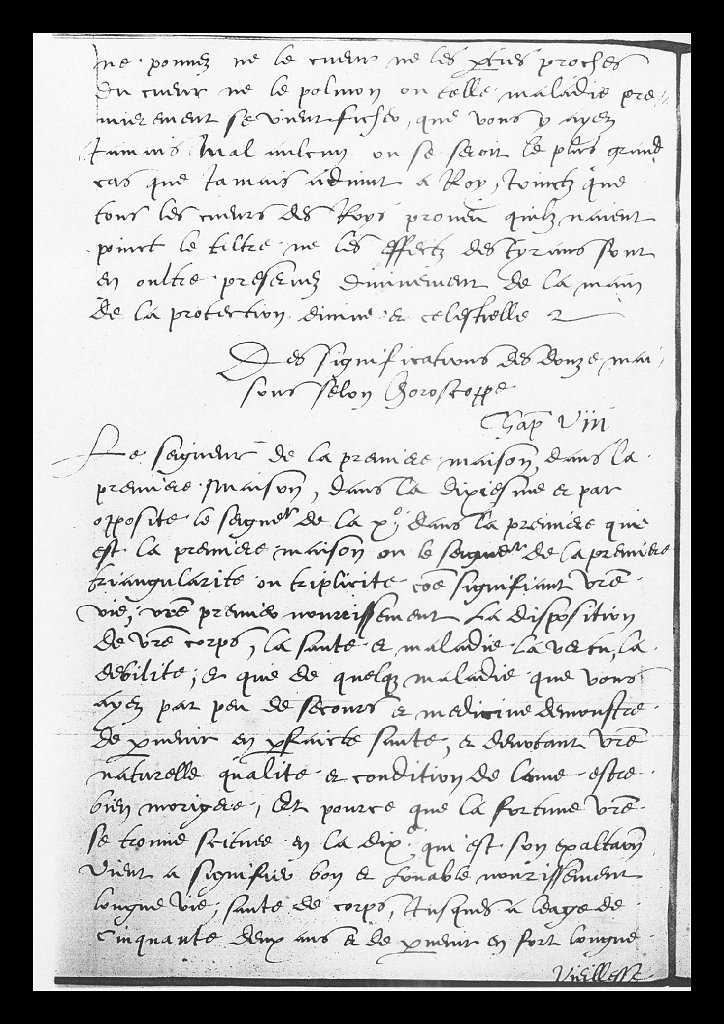 ne ponnez ne le cueur ne les p̱ties proches
du cueur ne le polmon ou telle maladie pre-
mierement se vient ficher, que vous y ayez
Jamais mal aulcun ou se seroit le plus grand
cas que Jamais advint a Roy, Joinctz que
tous les cueurs des Roys proueu quilz naient
poinct le tiltre ne les effectz des tyrans sont
en oultre preseruez diuinement de la main
de la protection diuine et celestielle
Des significations des douze mai-
sons selon horoscoppe
Chap Viii
Le seigneur de la premiere maison, dans la
premiere maison, dans la dixiesme et par
opposite le seigneʳ de la xᵒ, dans la premiere que
est la premiere maison ou le seigneʳ de la premiere
triangularite ou triplicite cōe signifiant vrē
vie, vrē premier nourrissement la disposition
de vrē corps, la sante et maladie la vertu, la
debilite, et que de quelqz maladie que vous
ayez par peu de secours et medicine demonstre
de p̱uenir en p̱faicte sante, et denotant vrē
naturelle qualite et condition de lame estre
bien morigere, Et pource que la fortune vrē
se trouue scituee en la dixᵉ, qui est son exaltaōn
vient a signifier bon et louable nourissement
longue vie, sante de corps, Jusques a leage de
cinquante deux ans et de p̱uenir en fort longue
vieillesse